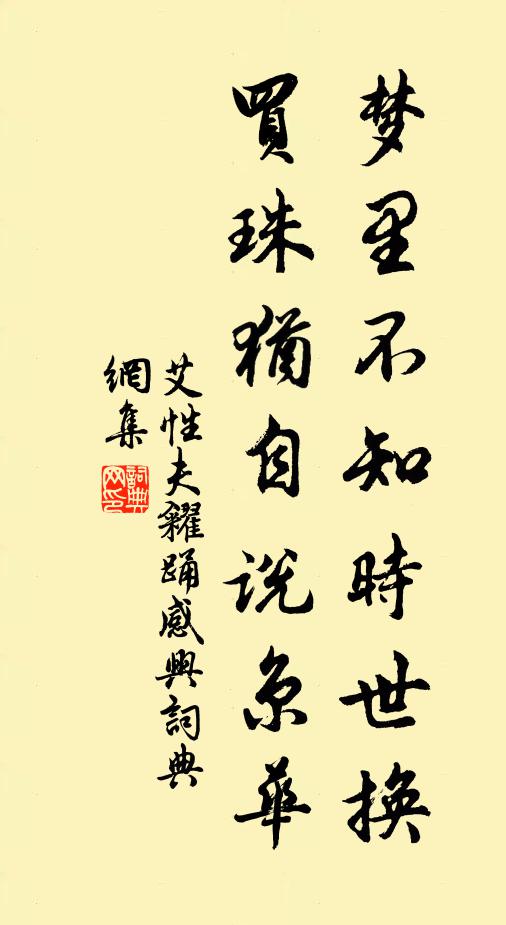 梦里不知時世換
買珠猶自説京華
艾性夫糴踊感興詞典
網集
詞典
网印